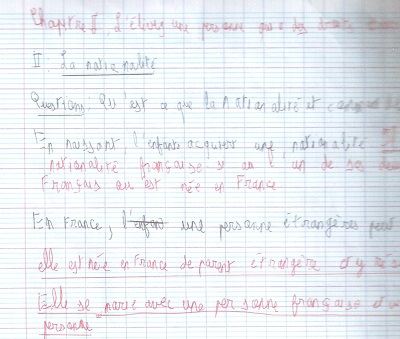 Chapitre I : L'élève, une personne qui a des droits
II : La nationalité
Questions : Qu'est ce que la nationalité et comment
En naissant l'enfant acquiert une nationalité
nationalité française si on l'un de ses
Français ou est née en France
En France, l'enfant une personne étrangères peut
elle est née en France de parent étrangère
Elle se marie avec une personne française et
personne